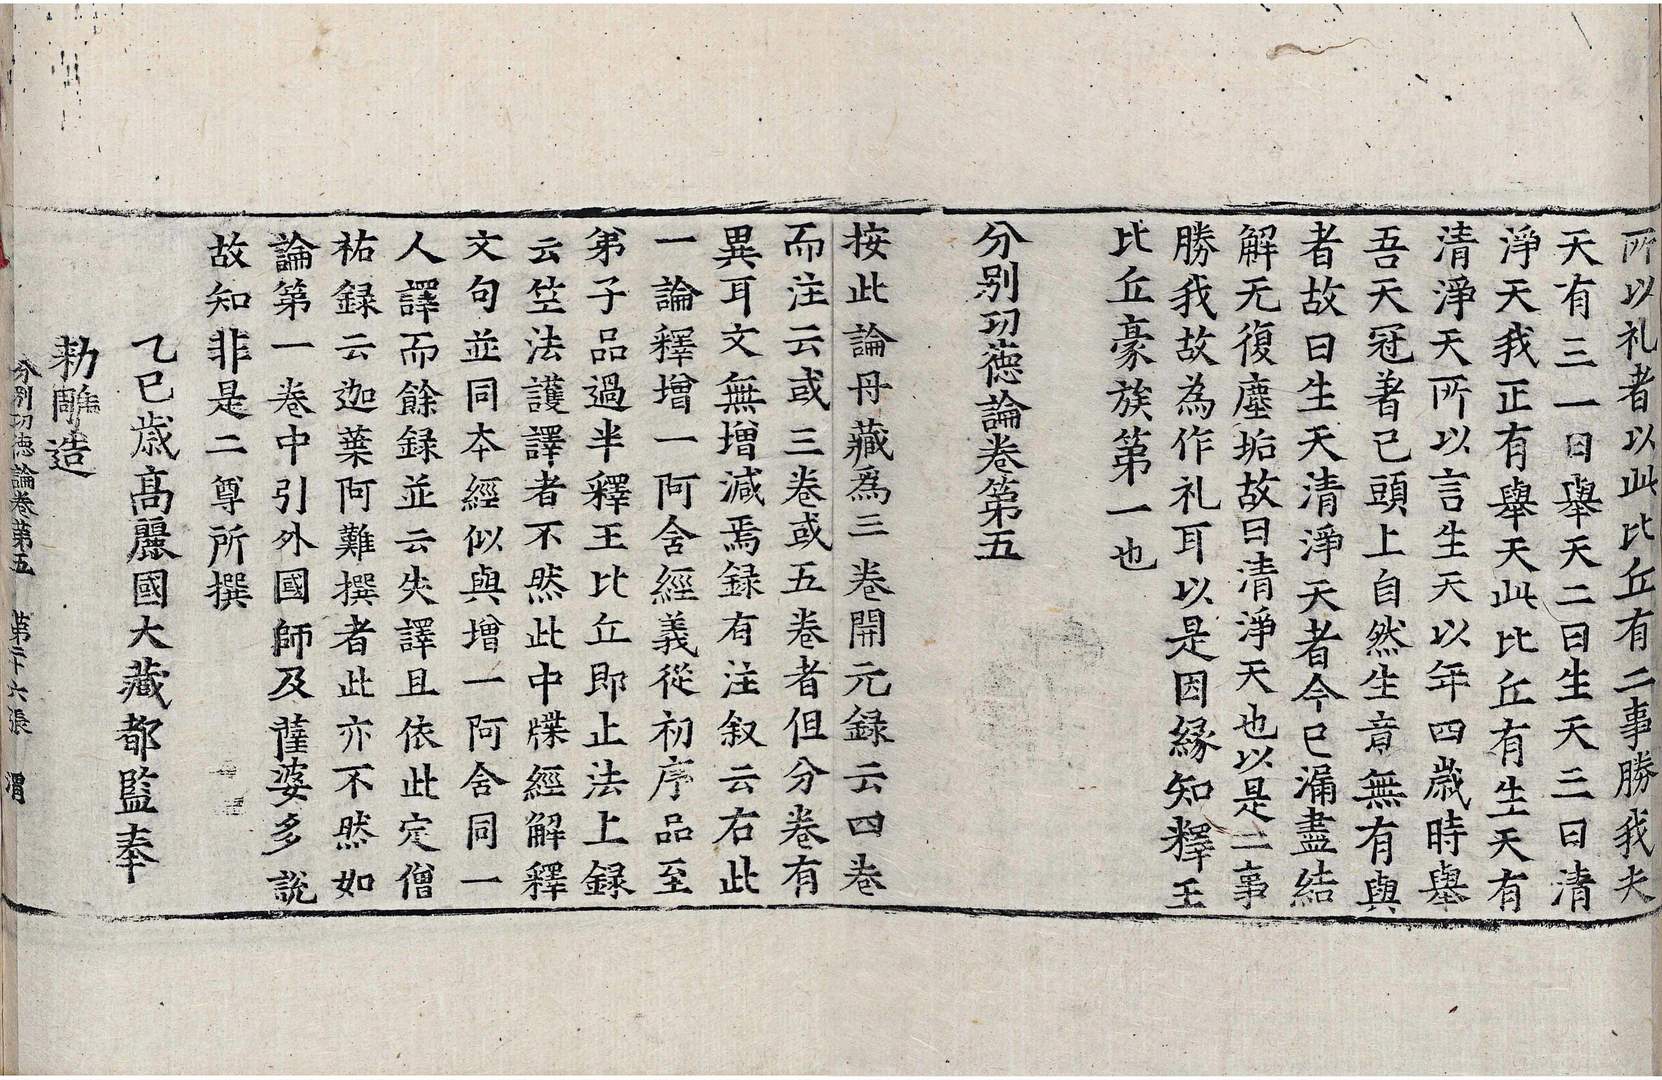 所以礼者以此比丘有二事勝我夫
天有三一曰舉天二曰生天三曰清
淨天我正有舉天此比丘有生天有
清淨天所以言生天以年四歲時舉
吾天冠著己頭上自然生音無有與
者故曰生天清淨天者今已漏盡結
解无復塵垢故曰清淨天也以是二事
勝我故為作礼耳以是因緣知釋王
比丘豪族第一也
分別功德論卷第五
按此論丹藏為三卷開元錄云四卷
而注云或三卷或五卷者但分卷有
異耳文無增減焉錄有注叙云右此
一論釋增一阿含經義從初序品至
弟子品過半釋王比丘即止法上錄
云竺法護譯者不然此中牒經解釋
文句並同本經似與增一阿含同一
人譯而餘錄並云失譯且依此定僧
祐錄云迦葉阿難撰者此亦不然如
論第一卷中引外國師及薩婆多說
故知非是二尊所撰
乙巳歲高麗國大藏都監奉
勅雕造
分別功德論卷第五 第二十六張 渭